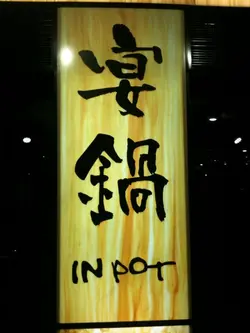 宴
鍋
IN POT